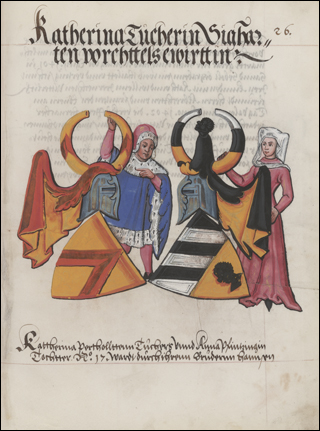 Katherina Tucherin Sighar=
ten vorchttels ewirttin
26.
Katherina Perchtolltten Tuchers vnnd Anna Pfinzingin
Tochtter No. 17. ward durch Irenn Bruderun hannsen